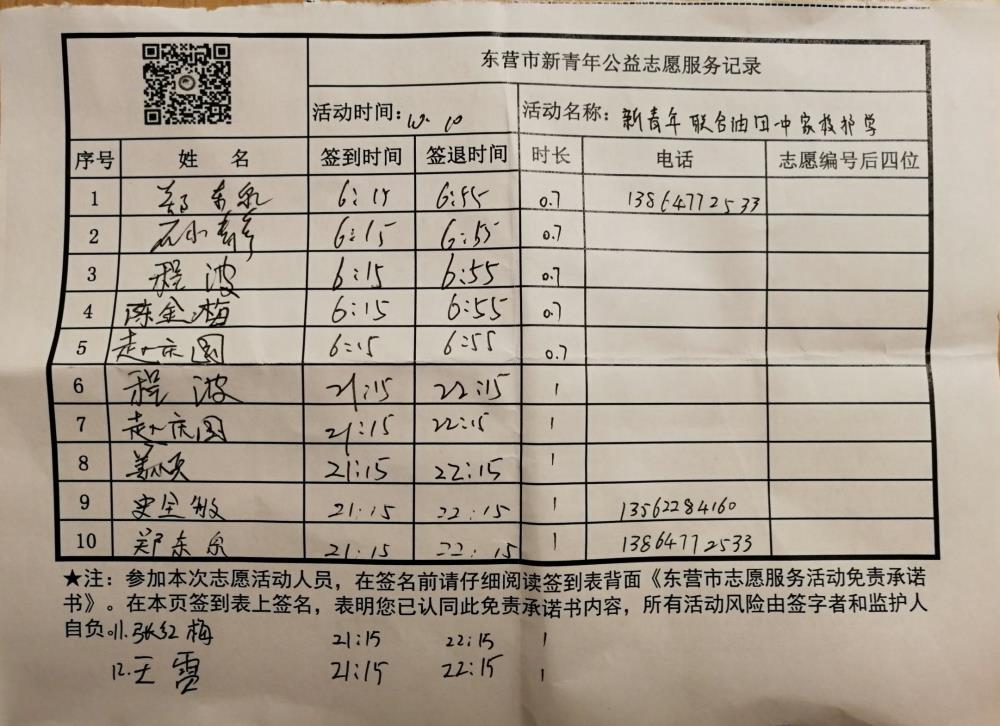 东营市新青年公益志愿服务记录
活动时间: 10.10 活动名称: 新青年联合油田中家校护学
序号 姓 名 签到时间 签退时间 时长 电话 志愿编号后四位
1 郑东泉 6:15 6:55 0.7 13864772533
2 石小 6:15 6:55 0.7
3 程波 6:15 6:55 0.7
4 陈金梅 6:15 6:55 0.7
5 赵庆国 6:15 6:55 0.7
6 程波 21:15 22:15 1
7 赵庆国 21:15 22:15 1
8 21:15 22:15 1
9 史全敏 21:15 22:15 1 13562284160
10 郑东泉 21:15 22:15 1 13864772533
★注：参加本次志愿活动人员，在签名前请仔细阅读签到表背面《东营市志愿服务活动免责承诺
书》。在本页签到表上签名，表明您已认同此免责承诺书内容，所有活动风险由签字者和监护人
自负。
11.张红梅 21:15 22:15 1
12.王雪 21:15 22:15 1